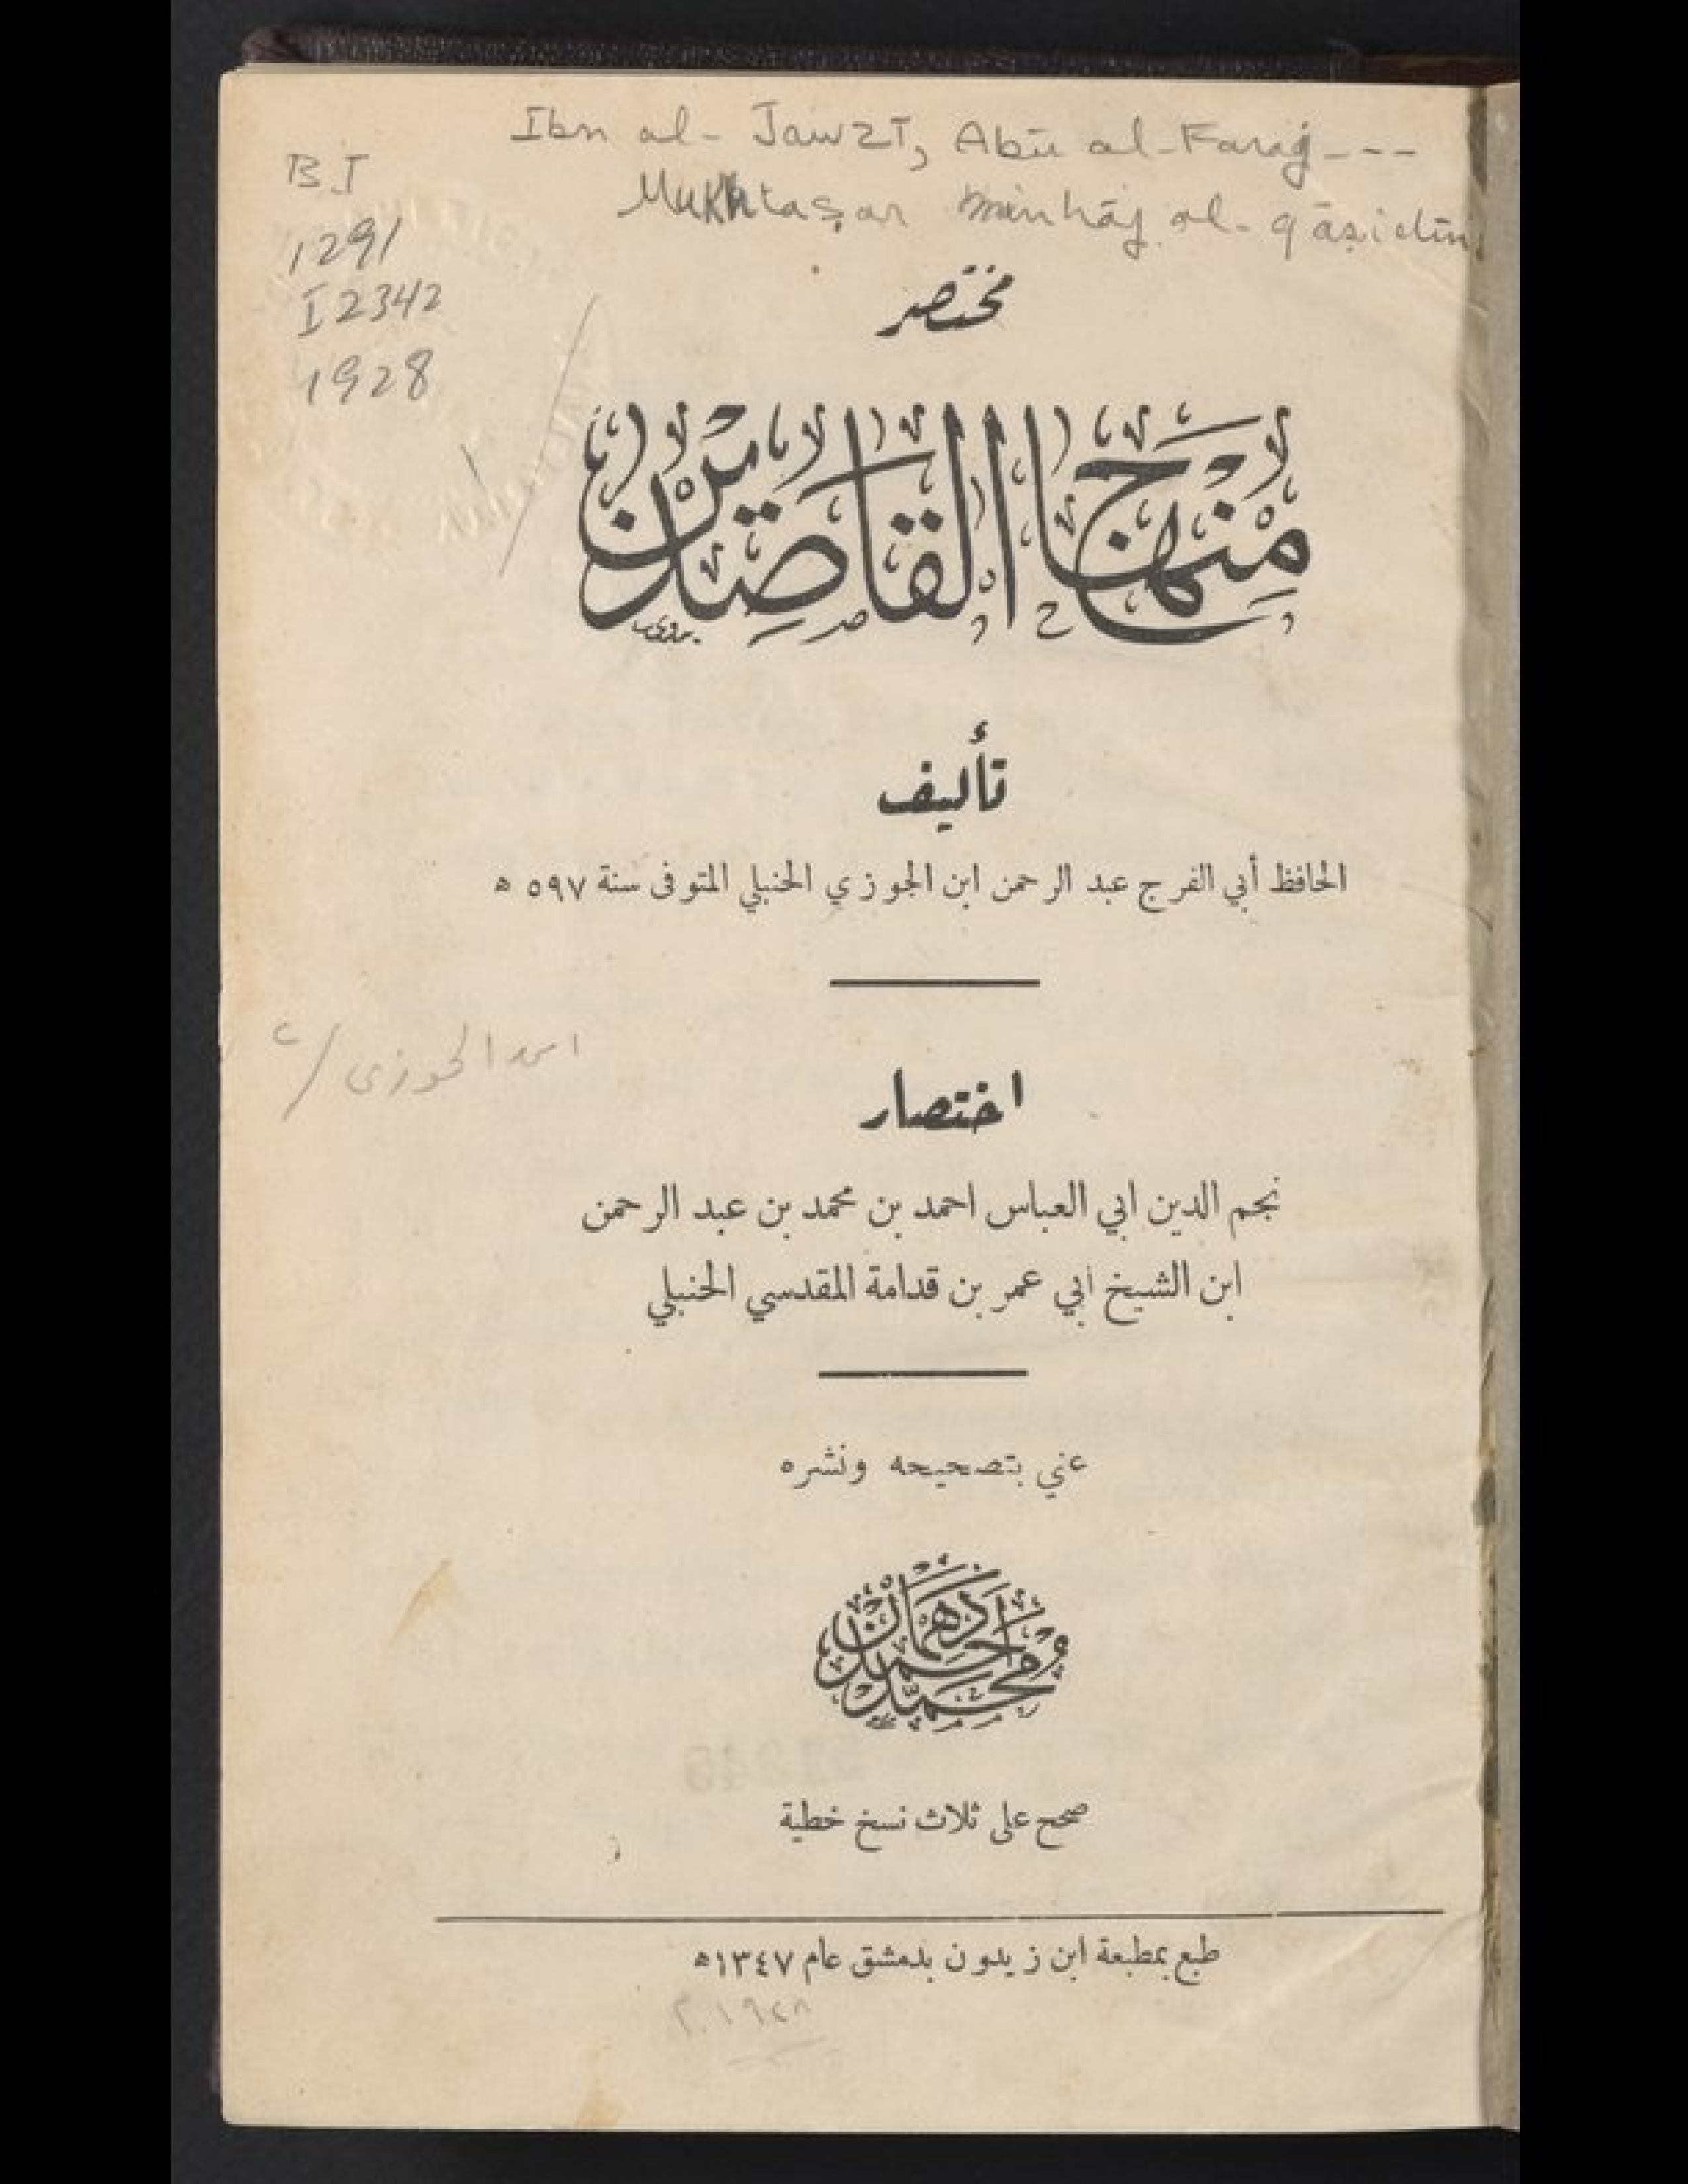 Ibn al-Jawzī, Abū al-Faraj ---
Mukhtaṣar minhāj al-qāṣidīn
BJ
1291
I2342
1928
مختصر
مِنهَاجُ القَاصِدِين
تأليف
الحافظ أبي الفرج عبد الرحمن ابن الجوزي الحنبلي المتوفى سنة ٥٩٧ ه
الجوزي
اختصار
نجم الدين ابي العباس احمد بن محمد بن عبد الرحمن
ابن الشيخ أبي عمر بن قدامة المقدسي الحنبلي
عني بتصحيحه ونشره
محمد أحمد دهمان
صحح على ثلاث نسخ خطية
طبع بمطبعة ابن زيدون بدمشق عام ١٣٤٧ه
١٩٢٨ م